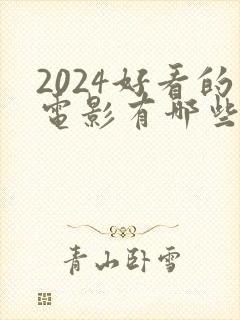 2024好看的
电影有哪些
青山卧雪